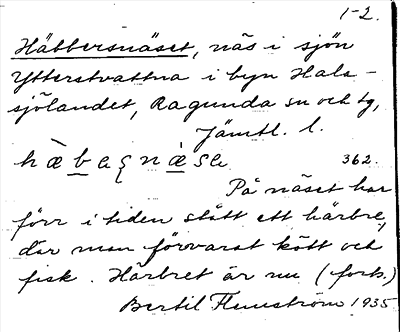 1-2.
Häbbersnäset, näs i sjön
Ytterstvattna i byn Hals-
sjölandet, Ragunda sn och tg,
Jämtl. l.
362.
På näset har
förr i tiden stått ett härbre,
där man förvarat kött och
fisk. Härbret är nu (forts.)
Bertil Flemström 1935